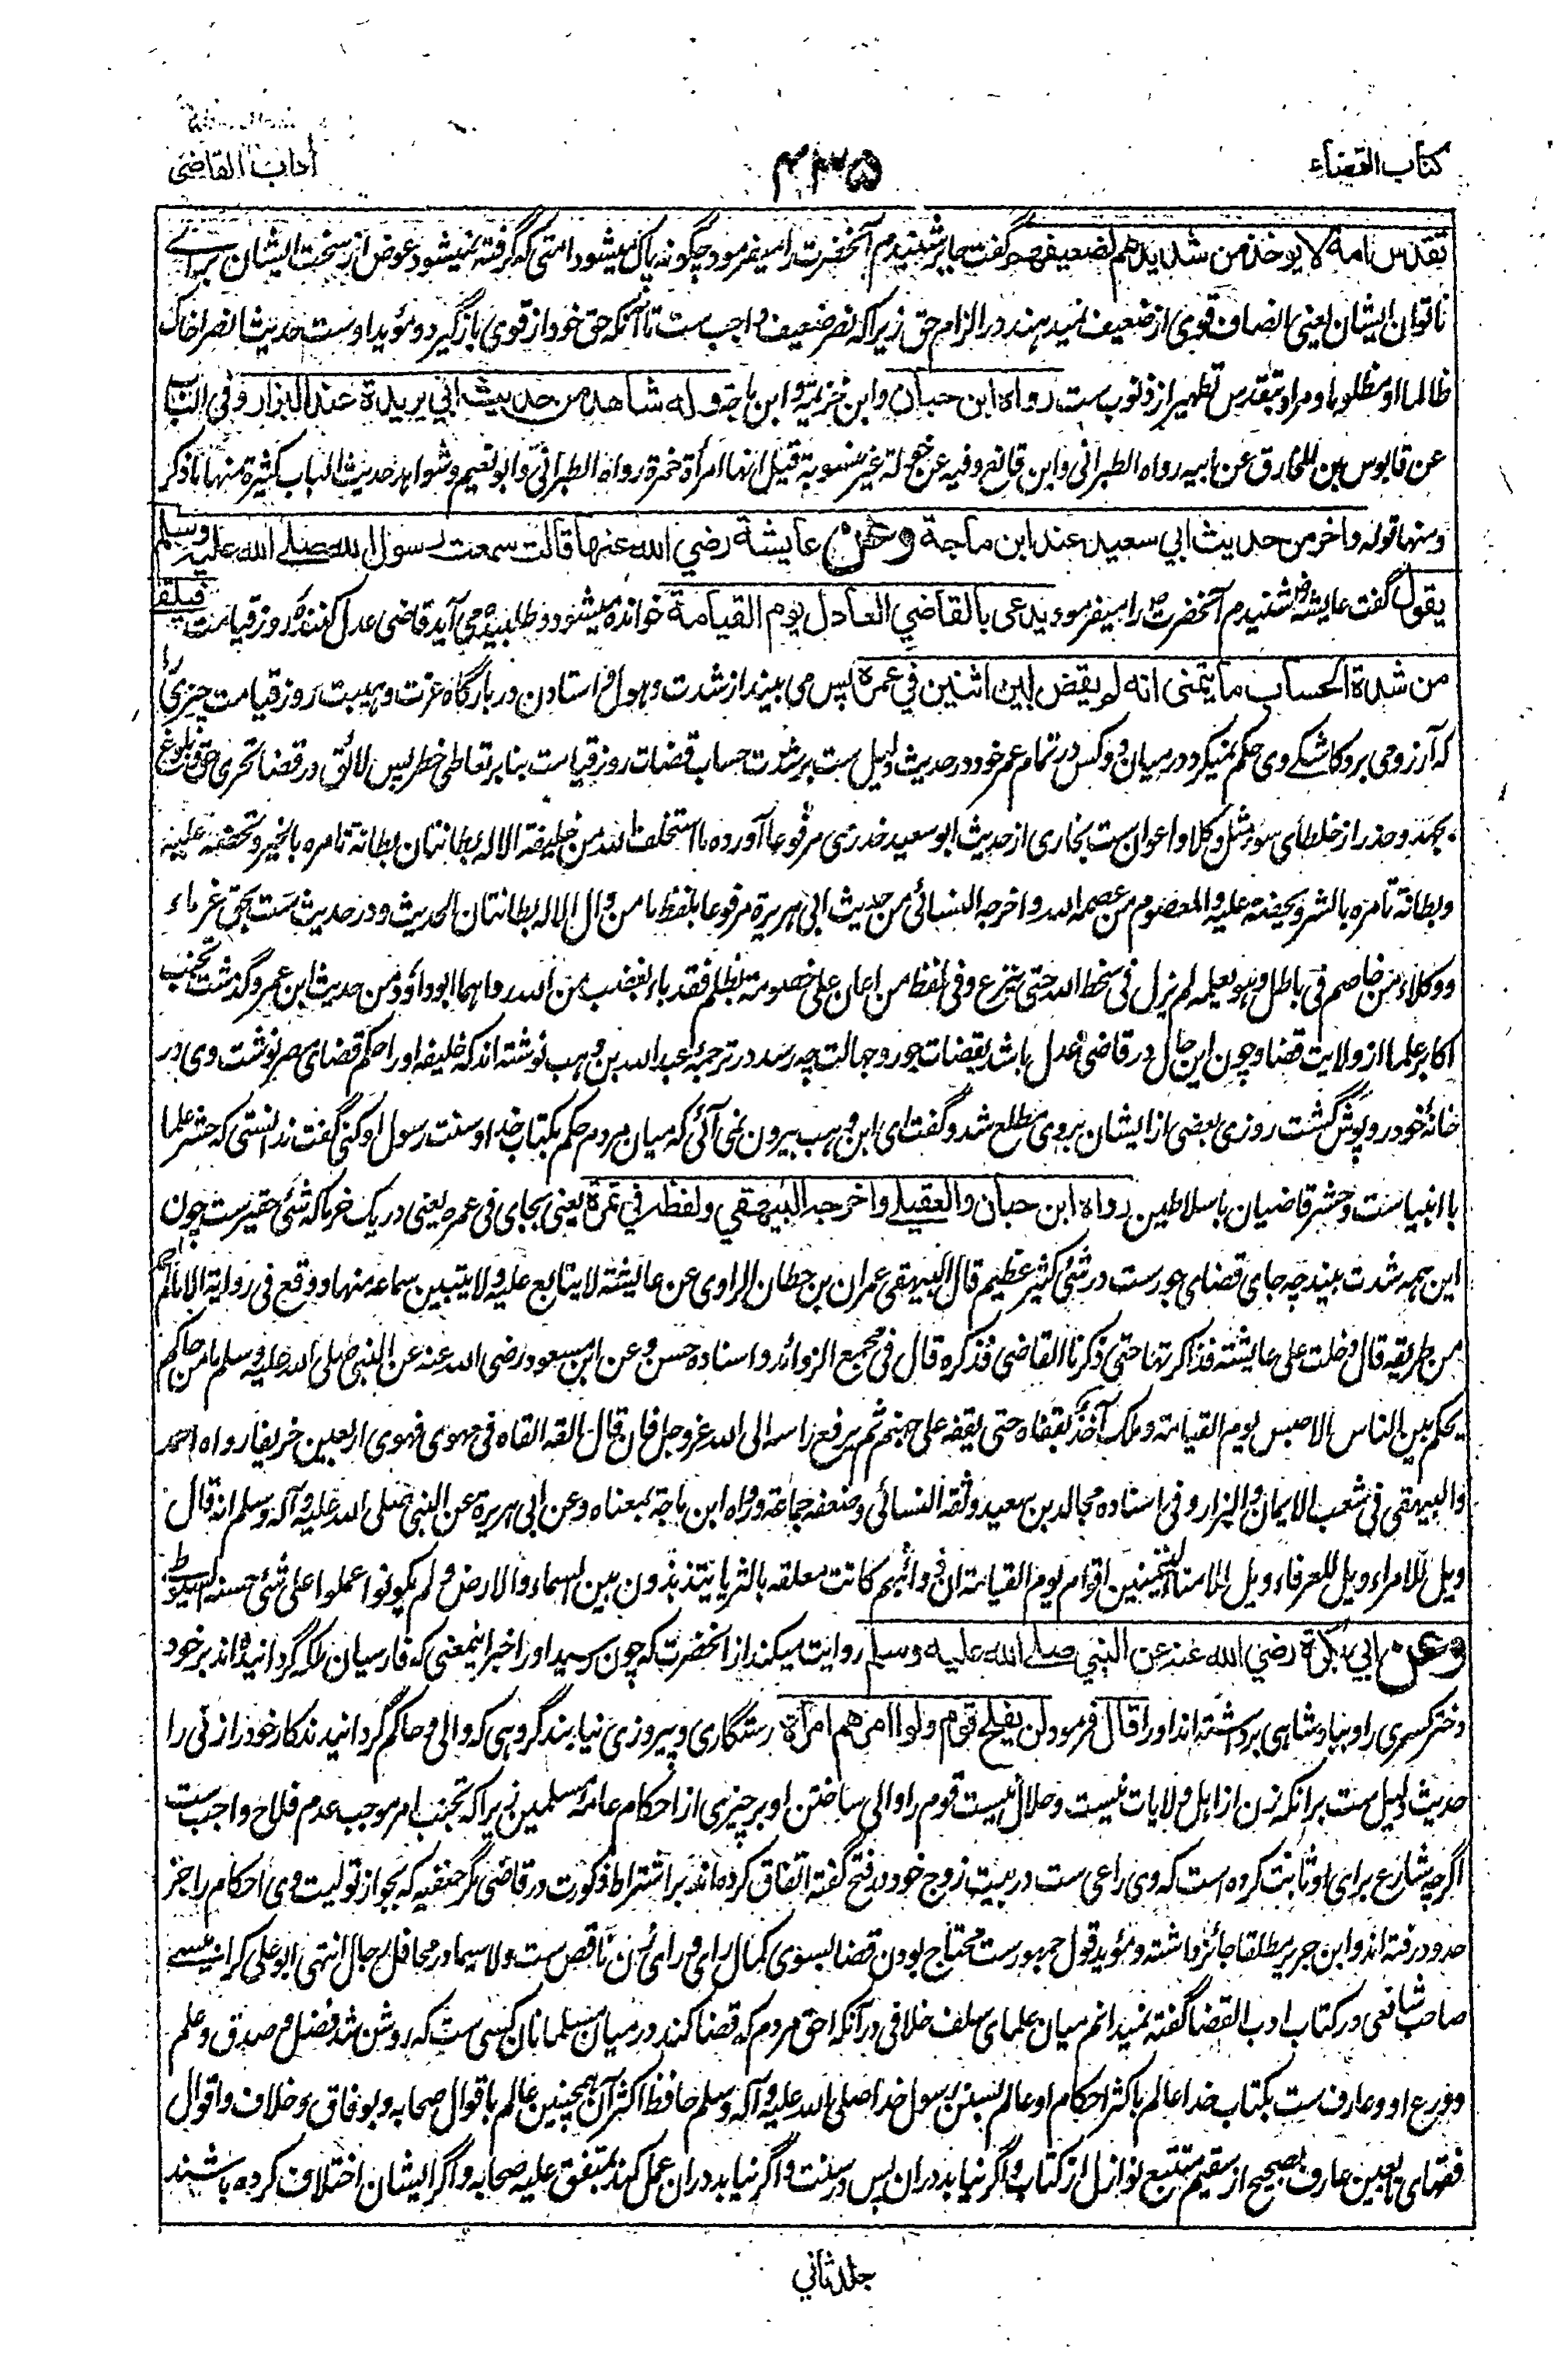 كتاب القضاء
۴۳۵
آداب القاضي
تقدس امة لا يوخذ من شديدهم لضعيفهم گفت جابر شنيدم آنحضرت را ميفرمود چگونه پاك ميشود امتى كه گرفته نميشود عوض از سخت ايشان براے
ناتوان ايشان يعنى انصاف قوى از ضعيف نميدهند در الزام حق زيرا كه نصر ضعيف واجب ست تا آنكه حق خود از قوى بازگيرد و مؤيد اوست حديث انصر اخاك
ظالما او مظلوما و مراد بتقدس تطهير از ذنوب ست رواه ابن حبان و ابن خزيمة و ابن ماجة وله شاهد من حديث ابي بريدة عند البزار وفى الباب
عن قابوس بن المخارق عن ابيه رواه الطبرانى وابن قانع وفيه عن خولة غير منسوبة قيل انها امرأة حمزة رواه الطبرانى وابو نعيم وشواهد حديث الباب كثيرة منها ما ذكر
ومنها قوله واخر من حديث ابي سعيد عند ابن ماجة وعن عايشة رضي الله عنها قالت سمعت رسول الله صلے الله عليه وسلم
يقول گفت عايشه شنيدم آنحضرت را ميفرمود يدعى بالقاضي العادل يوم القيامة خوانده ميشود و طلبيده مى آيد قاضى عدل كننده روز قيامت فيلقى
من شدة الحساب ما يتمنى انه لم يقض بين اثنين في عمره پس مى بيند از شدت و هول فرا ستادن در بارگاه عزت و هيبت روز قيامت چيزى را
كه آرزو مى برد كاشكے وى حكم نميكرد در ميان دو كس در تمام عمر خود و در حديث دليل ست بر شدت حساب قضات روز قيامت بنا بر تعاطى خطر پس لائق در قضا تحرى حق و بلوغ
بجهد و حذر از خلطاى سوء مثل وكلا و اعوان ست بخارى از حديث ابو سعيد خدرى مرفوعا آورده ما استخلف الله من خليفة الا له بطانتان بطانة تامره بالخير وتحضه عليه
وبطانة تامره بالشر وتحضه عليه والمعصوم من عصمه الله واخرجه النسائى من حديث ابى هريرة مرفوعا بلفظ ما من وال الا له بطانتان الحديث و در حديث ست بحق غرماء
ووكلاء من خاصم فى باطل وهو يعلمه لم يزل فى سخط الله حتى ينزع وفى لفظ من اعان على خصومة بظلم فقد باء بغضب من الله رواهما ابو داؤد من حديث ابن عمر و گذشت تجنب
اكابر علما از ولايت قضا و چون اين حال در قاضى عدل باشد بقضات جور و جهالت چه رسد در ترجمۂ عبد الله بن وهب نوشته اند كه خليفه او را حكم قضاى مصر نوشت وى در
خانۂ خود روپوش گشت روزى بعضى از ايشان بروى مطلع شد و گفت اى ابن وهب بيرون نمى آئى كه ميان مردم حكم بكتاب خدا و سنت رسول او كنى گفت ندانستى كه حشر علما
با انبياست و حشر قاضيان با سلاطين رواه ابن حبان والعقيلے واخرجه البيهقي ولفظه في تمرة يعنى بجاى فى عمره يعنى در يك خرما كه شئ حقيرست چون
اين همه شدت بيند چه جاى قضاى جورست در شئ كثير عظيم قال البيهقى عمران بن حطان الراوى عن عائشة لا يتابع عليه ولا يتبين سماعه منها ووقع فى رواية الامام احمد
من طريقه قال دخلت على عايشة فذاكرتها حتى ذكرنا القاضى فذكره قال فى مجمع الزوائد واسناده حسن وعن ابن مسعود رضى الله عنه عن النبى صلى الله عليه وسلم ما من حاكم
يحكم بين الناس الا حبس يوم القيامة وملك آخذ بقفاه حتى يقفه على جهنم ثم يرفع راسه الى الله عز وجل فان قال القه القاه فى مهوى فهوى اربعين خريفا رواه احمد
والبيهقى فى شعب الايمان والبزار وفى اسناده مجالد بن سعيد وثقه النسائى وضعفه جماعة ورواه ابن ماجة بمعناه وعن ابى هريرة عن النبى صلى الله عليه وآله وسلم انه قال
ويل للامراء ويل للعرفاء ويل للامناء ليتمنين اقوام يوم القيامة ان ذوائبهم كانت معلقه بالثريا يتذبذبون بين السماء والارض ولم يكونوا عملوا على شئ حسنه السيوطے
وعن ابي بكرة رضي الله عنه عن النبي صلے الله عليه وسلم روايت ميكند از آنحضرت كه چون رسيد او را خبر اينمعنى كه فارسيان ملكه گردانيده اند بر خود
دختر كسرى را و بپادشاهى برداشته اند او را قال فرمود لن يفلح قوم ولوا امرهم امرأة رستگارى و پيروزى نيابند گروهى كه والى و حاكم گردانيدند كار خود را زنى را
حديث دليل ست بر آنكه زن از اهل ولايات نيست و حلال نيست قوم را والى ساختن او بر چيزى از احكام عامۂ مسلمين زيرا كه تجنب امر موجب عدم فلاح واجب ست
اگرچه شارع براى او ثابت كرده است كه وى راعى ست در بيت زوج خود و در فتح گفته اتفاق كرده اند بر اشتراط ذكورت در قاضى مگر حنفيه كه بجواز توليت وى احكام را جز
حدود رفته اند و ابن جرير مطلقا جائز داشته و مؤيد قول جمهورست محتاج بودن قضا بسوى كمال راى و راى زن ناقص ست ولا سيما در محافل رجال انتهى ابو على كرابيسے
صاحب شافعى در كتاب ادب القضا گفته نميدانم ميان علماى سلف خلافى در آنكه احق مردم كه قضا كند در ميان مسلمانان كسى ست كه روشن شد فضل و صدق و علم
و ورع او و عارف ست بكتاب خدا عالم باكثر احكام او عالم بسنن رسول خدا صلى الله عليه وآله وسلم حافظ اكثر آن همچنين عالم باقوال صحابه و بوفاق و خلاف و اقوال
فقهاى تابعين عارف بصحيح از سقيم متتبع نوازل از كتاب و اگر نيابد دران پس در سنت و اگر نيابد دران عمل كند بمتفق عليه صحابه و اگر ايشان اختلاف كرده باشند
جلد ثاني